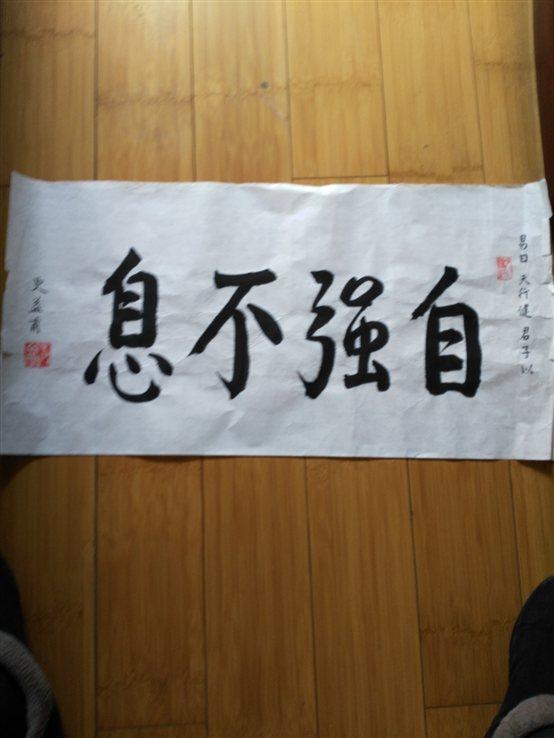 易曰 天行健 君子以
自强不息